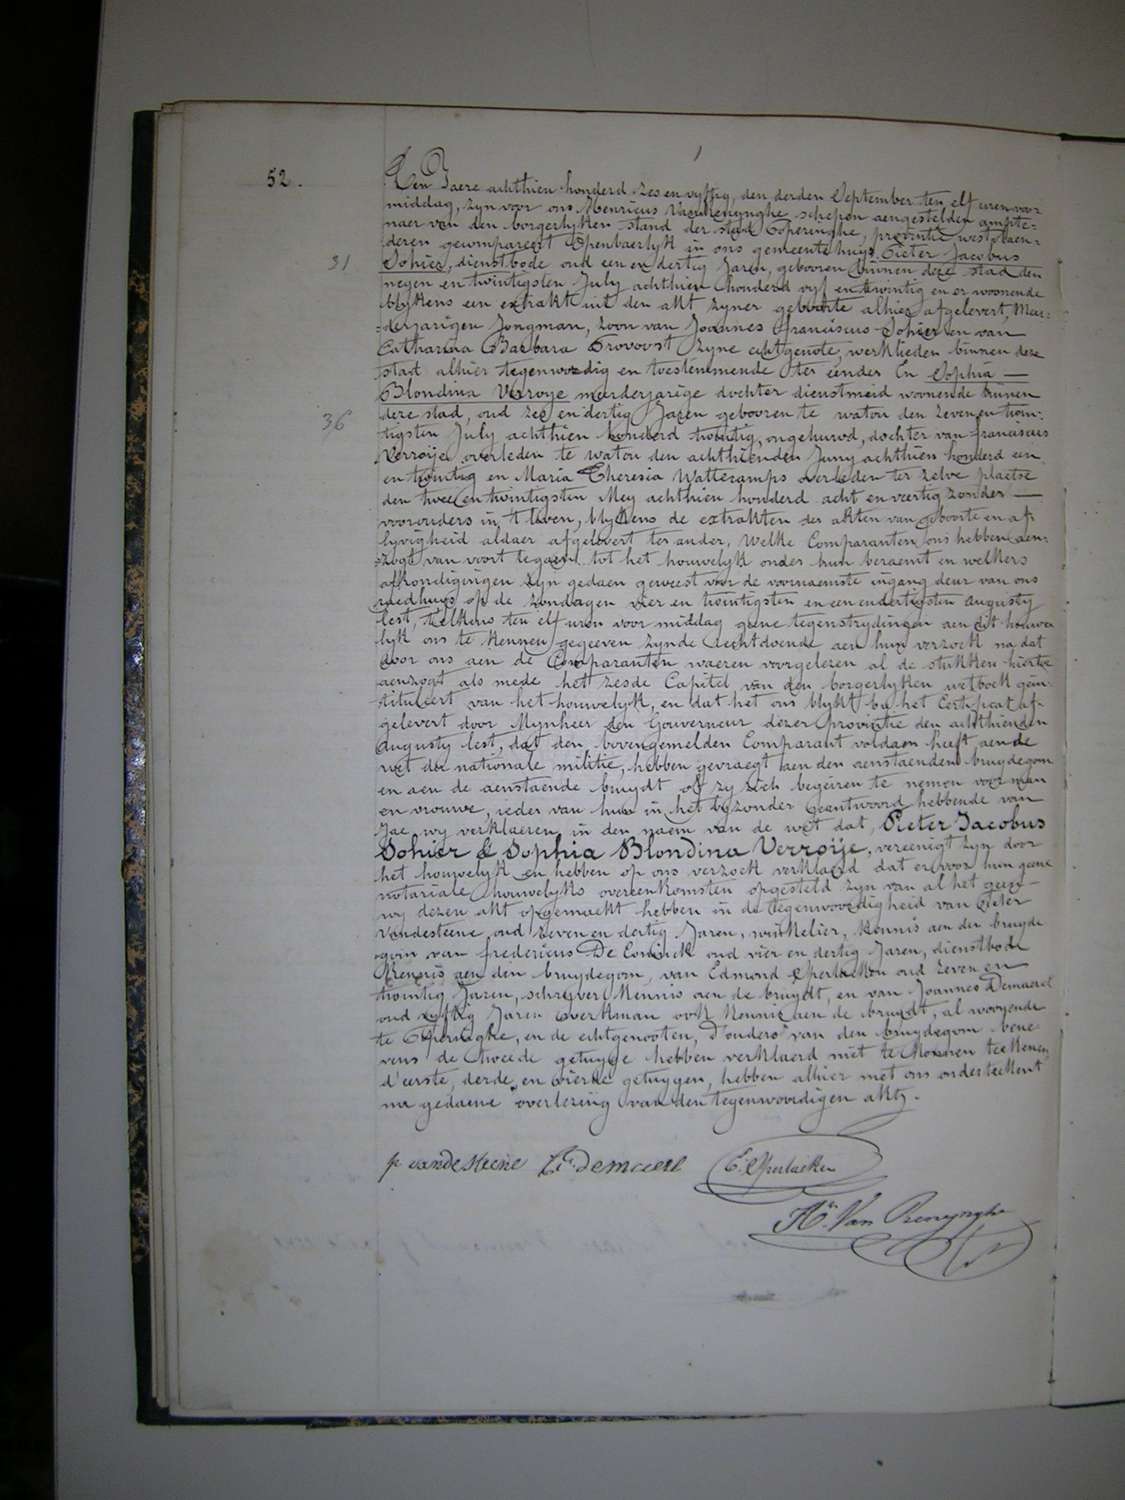 52.
Den Jaere achthien honderd zes en vyftig, den derden September ten elf uren voor
middag, zyn voor ons Henricus Vanrenynghe schepen aengestelden ampte-
naer van den borgerlyken stand der stad Poperinghe, provintie westvlaen-
deren gecompareert openbaerlyk in ons gemeentehuys Pieter Jacobus
31
Sohier, dienstbode oud een en dertig Jaren, gebooren binnen deze stad den
negen en twintigsten July achthien honderd vyf en twintig en er woonende
blykens een extrakt uit den akt zyner geboorte alhier afgelevert, Meer-
derjarigen Jongman, zoon van Joannes franciscus Sohier en van
Catharina Barbara Provoost zyne echtgenote, werklieden binnen deze
stad alhier tegenwoordig en toestemmende ter eender En Sophia
Blondina Verroye meerderjarige dochter dienstmeid woonende binnen
36
deze stad, oud zes en dertig Jaren gebooren te watou den zeven en twin-
tigsten July achthien honderd twintig, ongehuwd, dochter van franciscus
Verroije overleden te watou den achthienden Juny achthien honderd een
en twintig en Maria Theresia Wattecamps overleden ter zelve plaetse
den twee en twintigsten Mey achthien honderd acht en veertig zonder
voorouders in 't leven, blykens de extrakten der akten van geboorte en af-
lyvigheid aldaer afgelevert ter ander, Welke Comparanten ons hebben aen-
zogt van voort te gaen tot het houwelyk onder hun beraemt en welkers
afkondigingen zyn gedaen geweest voor de voornaemste ingang deur van ons
raedhuys op de zondagen vier en twintigsten en een en dertigsten augusty
lest, telkens ten elf uren voor middag geene tegenstrydingen aen dit houwe-
lyk ons te kennen gegeeven zynde rechtdoende aen hun verzoek na dat
door ons aen de Comparanten waeren voorgelezen al de stukken hiertoe
aenzogt als mede het zesde Capitel van den borgerlyken wetboek gein-
tituleert van het houwelyk, en dat het ons blykt by het Certificat af-
gelevert door Mynheer den Gouverneur dezer provintie den achthienden
augusty lest, dat den bovengemelden Comparant voldaen heeft aen de
wet der nationale militie, hebben gevraegt aen den aenstaenden bruydegom
en aen de aenstaende bruydt of zy zich begeiren te nemen voor man
en vrouwe, ieder van hun in het byzonder geantwoord hebbende van
Jae wy verklaeren in den naem van de wet dat, Pieter Jacobus
Sohier & Sophia Blondina Verroije, vereenigt zyn door
het houwelyk en hebben op ons verzoek verklaerd dat er voor hun geene
notariale houwelyks overeenkomsten opgesteld zyn van al het geen
wy dezen akt opgemaekt hebben in de tegenwoordigheid van Pieter
Vandesteene, oud zeven en dertig Jaren, winkelier, kennis aen den bruyde
gom van fredericus De Coninck oud vier en dertig Jaren, dienstbode
kennis aen den bruydegom, van Edmond Sperlaeken oud zeven en
twintig Jaren, schryver kennis aen de bruydt, en van Joannes Demaerel
oud vyftig Jaren werkman ook kennis aen de bruydt, al woonende
te Poperinghe, en de echtgenooten, d'ouders van den bruydegom bene-
vens de tweede getuyge hebben verklaerd niet te konnen teekenen
d'eerste, derde en vierde getuygen, hebben alhier met ons onderteekent
na gedaene overlezing van den tegenwoordigen akt.
p vandesteene Demaerel E. Sperlaeken
Hri. Van Renynghe